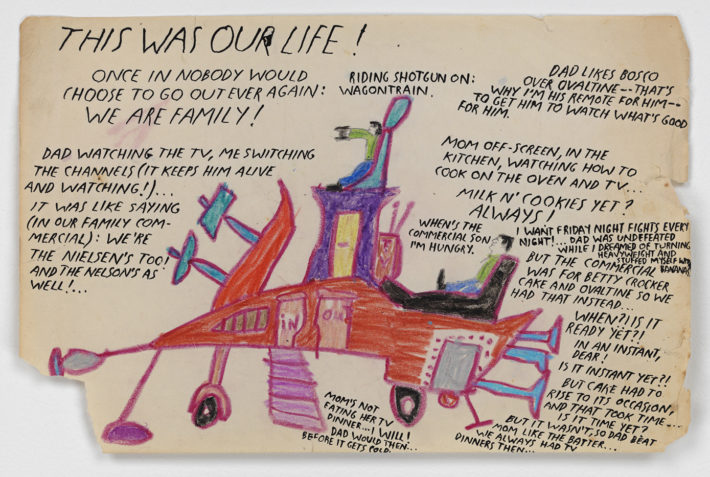 THIS WAS OUR LIFE!
ONCE IN NOBODY WOULD
CHOOSE TO GO OUT EVER AGAIN:
WE ARE FAMILY!
RIDING SHOTGUN ON:
WAGONTRAIN.
DAD LIKES BOSCO
OVER OVALTINE--THAT'S
WHY I'M HIS REMOTE FOR HIM--
TO GET HIM TO WATCH WHAT'S GOOD
FOR HIM.
DAD WATCHING THE TV, ME SWITCHING
THE CHANNELS (IT KEEPS HIM ALIVE
AND WATCHING!)...
IT WAS LIKE SAYING
(IN OUR FAMILY COM-
MERCIAL): WE'RE
THE NIELSEN'S TOO!
AND THE NELSON'S AS
WELL!...
MOM OFF-SCREEN, IN THE
KITCHEN, WATCHING HOW TO
COOK ON THE OVEN AND TV...
MILK N' COOKIES YET?
ALWAYS!
WHEN'S THE
COMMERCIAL SON
I'M HUNGRY.
I WANT FRIDAY NIGHT FIGHTS EVERY
NIGHT!... DAD WAS UNDEFEATED
WHILE I DREAMED OF TURNING
HEAVYWEIGHT AND
STUFFED MYSELF WITH
BANANAS
BUT THE COMMERCIAL
WAS FOR BETTY CROCKER
CAKE AND OVALTINE SO WE
HAD THAT INSTEAD...
WHEN?! IS IT
READY YET?!
IN AN INSTANT,
DEAR!
IS IT INSTANT YET?!
BUT CAKE HAD TO
RISE TO ITS OCCASION,
AND THAT TOOK TIME...
IS IT TIME YET?
BUT IT WASN'T, SO DAD BEAT
MOM LIKE THE BATTER...
WE ALWAYS HAD TV
DINNERS THEN...
IN
OUT
MOM'S NOT
EATING HER TV
DINNER...I WILL!
DAD WOULD THEN...
BEFORE IT GETS COLD.